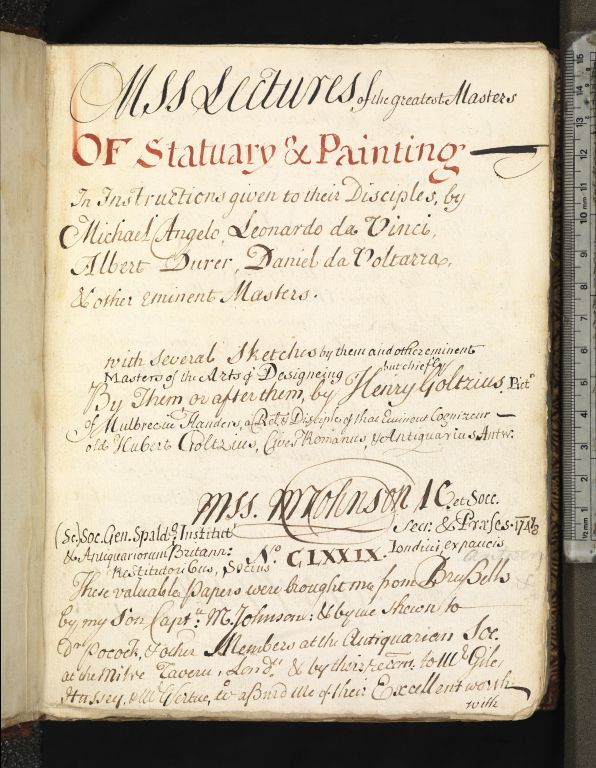 MSS Lectures of the greatest Masters
OF Statuary & Painting
In Instructions given to their Disciples, by
Michael Angelo, Leonardo da Vinci,
Albert Durer, Daniel da Voltarra,
& other eminent Masters.
with several Sketches by them and other eminent
Masters of the Arts of Designeing but chiefly
By Them or after them, by Henry Goltzius Pict.r
of Mulbrec in Flanders, a & Disciple of that Eminent
old Hubert Goltzius, Cives Romanus, & Antiquarius Antw.
Mss. MJohnson IC. et Soc.
(Sc.) Soc. Gen. Spald.g Institut.r Secr. & Præses. 174
& Antiquariorum Britann: No. CLXXIX. Londini, ex paucis
Restitutoribus, Socius
These valuable Papers were brought me from Brussells
by my son Capt.n M. Johnson: & by me shewn to
D.r Pocock, & other Members at the Antiquarian Soc.
at the Mitre Tavern, Lond.n & by their recom. to M.r Giles
Hussey, & M.r Vertue, w.o assured me of their Excellent worth
with